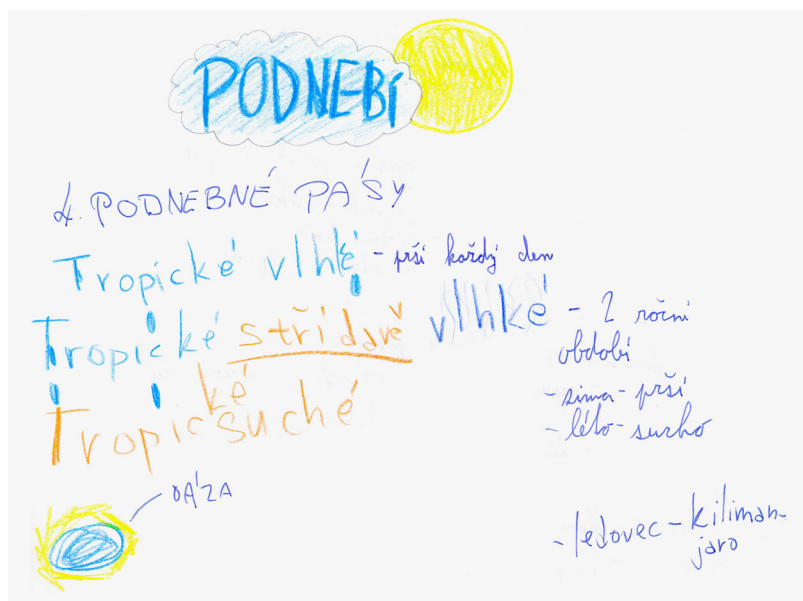 PODNEBÍ
4. PODNEBNÉ PÁSY
Tropické vlhké - prší každý den
Tropické střídavě vlhké - 2 roční
období
- zima - prší
- léto - sucho
Tropické suché
OÁZA
- ledovec - kiliman-
jaro